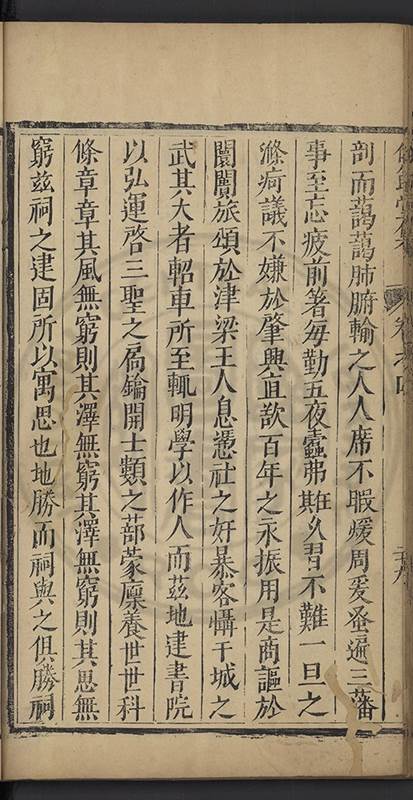 卷之四
剖而藹藹肺腑輸之人人席不暇煖周爰咨遍三藩
事至忘疲前箸每勤五夜蠹弗斑久習不難一旦之
滌痾議不嫌於肇興直歆百年之永振用是商謳於
闤闠旅頌於津梁王人息憑社之奸暴客懾干城之
武其大者軺車所至輒明學以作人而茲地建書院
以弘運啓三聖之扃鑰開士類之蔀蒙廩養世世科
條章章其風無窮則其澤無窮其澤無窮則其思無
窮茲祠之建固所以寓思也地勝而祠與之俱勝祠